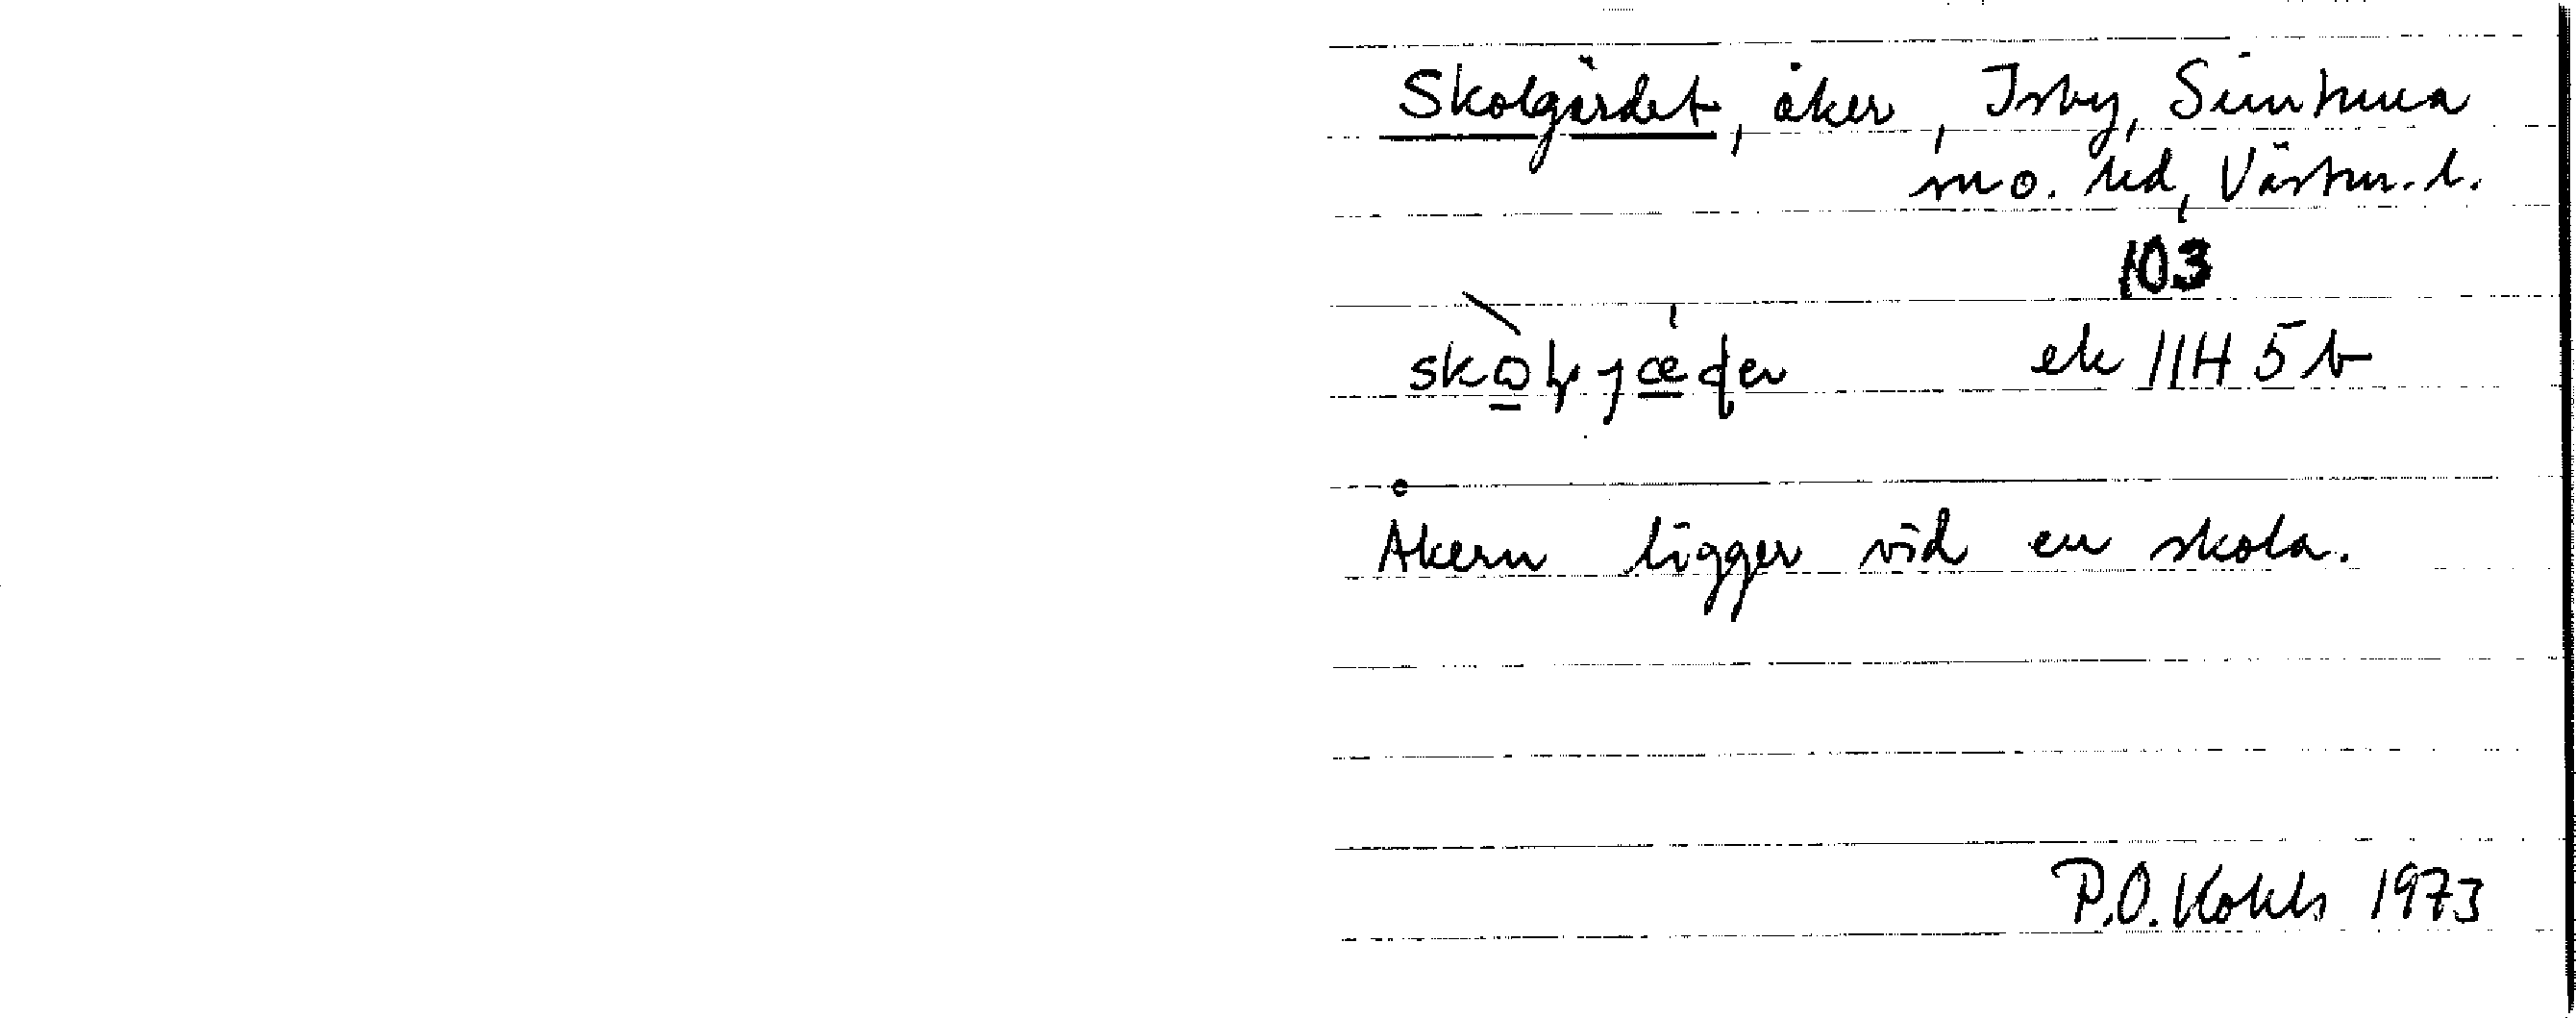 Skolgärdet, åker, Isby, Simtuna
sn o. hd, Västm. l.
103
ek 11H 5b
Åkern ligger vid en skola.
P.O. Kohls 1973